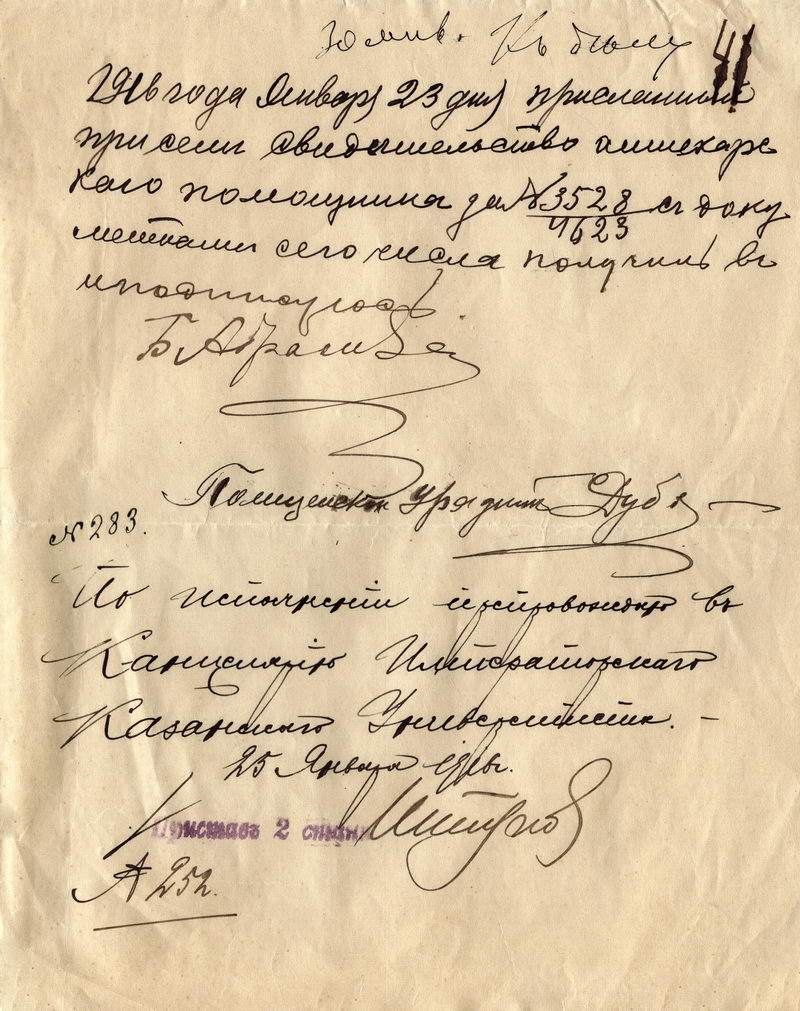 Къ дѣлу 41
1916 года Январ 23 дня присланный
при семъ свидѣтельство аптекарс
каго помощника за № 3528 съ доку
4623
ментами сего числа получилъ въ
подписуюсь
Б. Абрамов
Полицейскій Урядникъ Дубо
№ 283.
По исполненіи препровождаю въ
Канцелярію Императорскаго
Казанскаго Университета. –
25 Января 1916г.
Приставъ 2 стана
№ 252.